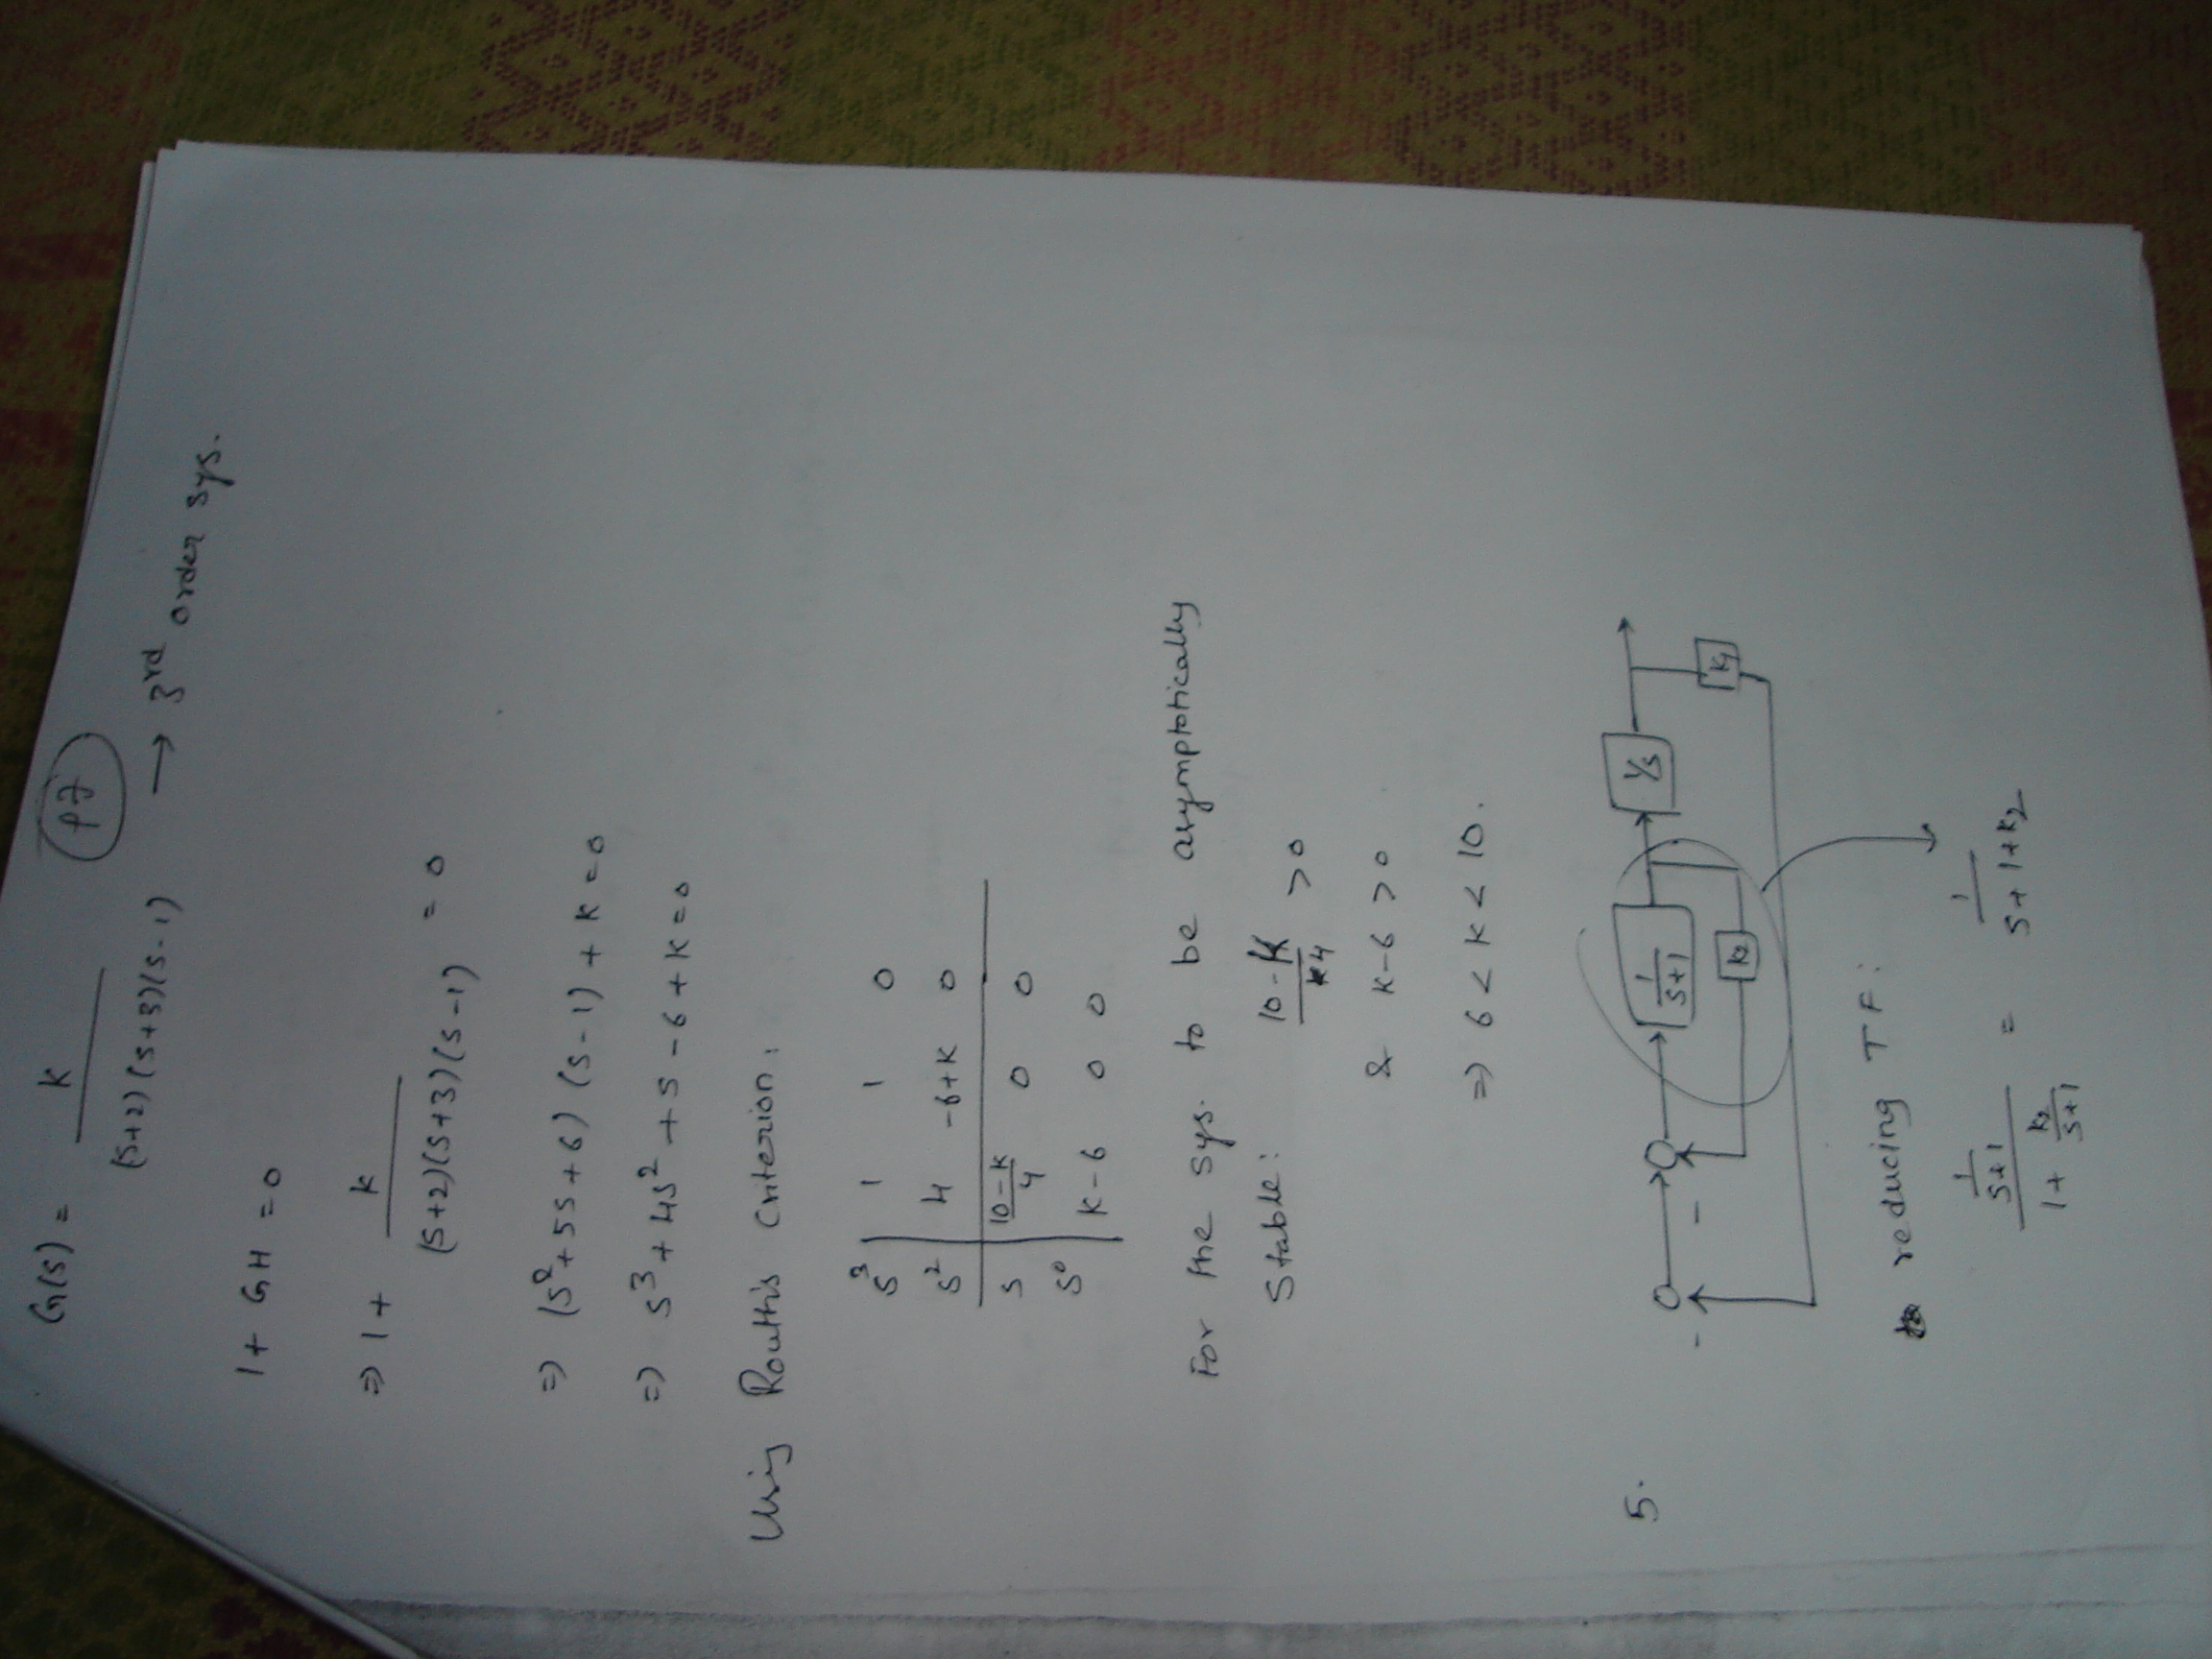 P7
G(s) = K / (s+2)(s+3)(s-1) → 3rd order sys.
1 + GH = 0
=) 1 + K / (s+2)(s+3)(s-1) = 0
=) (s²+5s+6)(s-1) + K = 0
=) s³ + 4s² + s - 6 + K = 0
Using Routh's Criterion:
s³ 1 1 0
s² 4 -6+K 0
s (10-K)/4 0 0
s⁰ K-6 0 0
For the sys. to be asymptotically
Stable: (10-K)/4 > 0
& K-6 > 0
=) 6 < K < 10.
5.
- - 1/(s+1) 1/s
K2 K1
reducing TF:
(1/(s+1)) / (1 + K2/(s+1)) = 1/(s+1+K2)